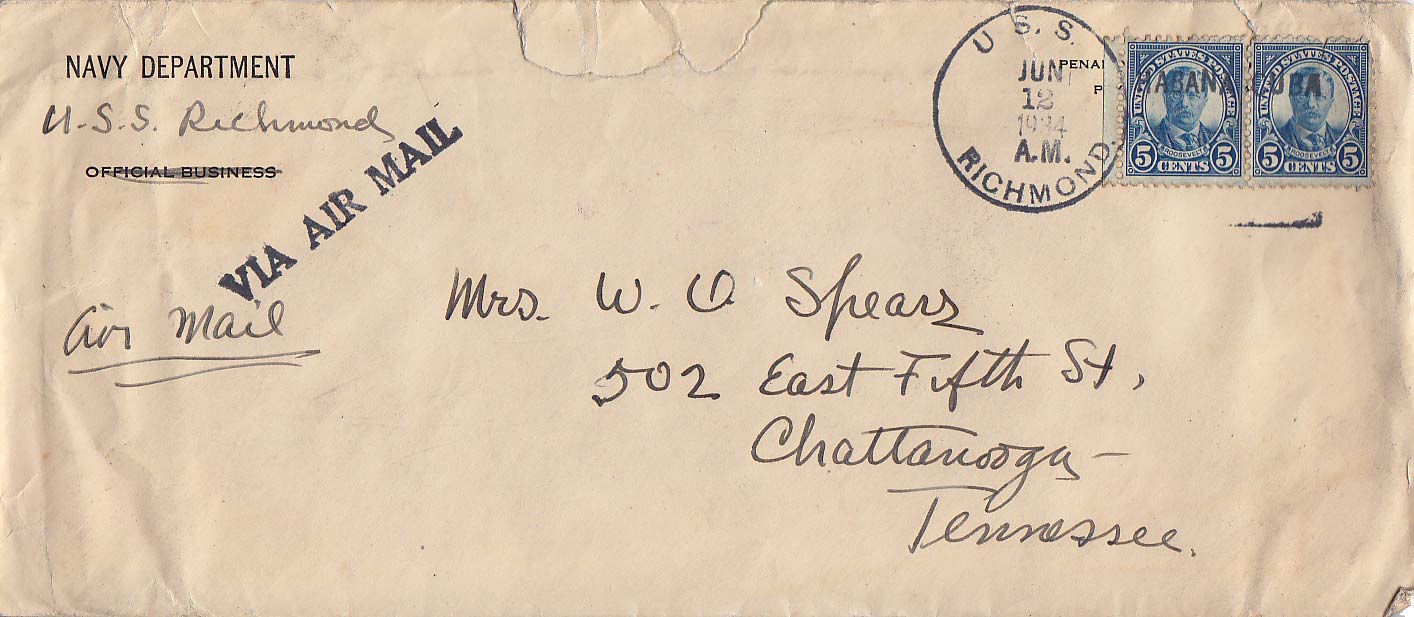 NAVY DEPARTMENT
U.S.S. Richmond
OFFICIAL BUSINESS
VIA AIR MAIL
Air Mail
U. S. S.
JUN
12
1934
A.M.
RICHMOND.
PENAL
P
HABANA CUBA
UNITED STATES POSTAGE
ROOSEVELT
5 CENTS 5
UNITED STATES POSTAGE
ROOSEVELT
5 CENTS 5
Mrs. W. O Spears
502 East Fifth St,
Chattanooga-
Tennessee.